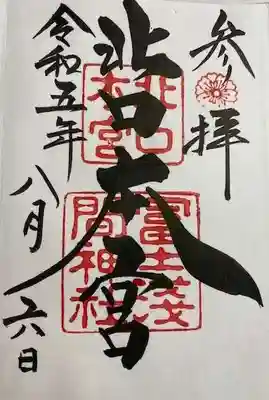 参拝
北口本宮
令和五年
八月十六日
北口
本宮
冨士浅
間神社